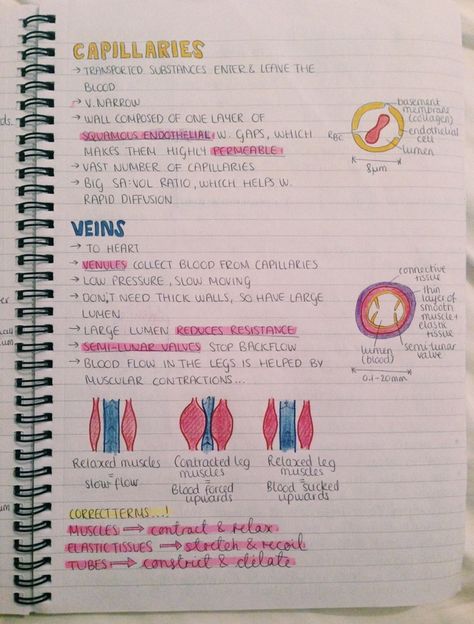 CAPILLARIES
→ TRANSPORTED SUBSTANCES ENTER & LEAVE THE
BLOOD
→ V. NARROW
→ WALL COMPOSED OF ONE LAYER OF
SQUAMOUS ENDOTHELIAL W. GAPS, WHICH
MAKES THEM HIGHLY PERMEABLE!
→ VAST NUMBER OF CAPILLARIES
→ BIG SA:VOL RATIO, WHICH HELPS W.
RAPID DIFFUSION
basement
membrane
(collagen)
RBC
endothelial
cell
lumen
8µm
VEINS
→ TO HEART
→ VENULES COLLECT BLOOD FROM CAPILLARIES
→ LOW PRESSURE, SLOW MOVING
→ DON'T NEED THICK WALLS, SO HAVE LARGE
LUMEN
→ LARGE LUMEN REDUCES RESISTANCE
→ SEMI-LUNAR VALVES STOP BACKFLOW
→ BLOOD FLOW IN THE LEGS IS HELPED BY
MUSCULAR CONTRACTIONS...
connective
tissue
thin
layer of
smooth
muscle +
elastic
tissue
lumen
(blood)
semi-lunar
valve
0.1-20mm
Relaxed muscles
=
slow flow
Contracted leg
muscles
=
Blood forced
upwards
Relaxed leg
muscles
=
Blood sucked
upwards
CORRECT TERMS...!
MUSCLES → contract & relax
ELASTIC TISSUES → stretch & recoil
TUBES → constrict & dilate